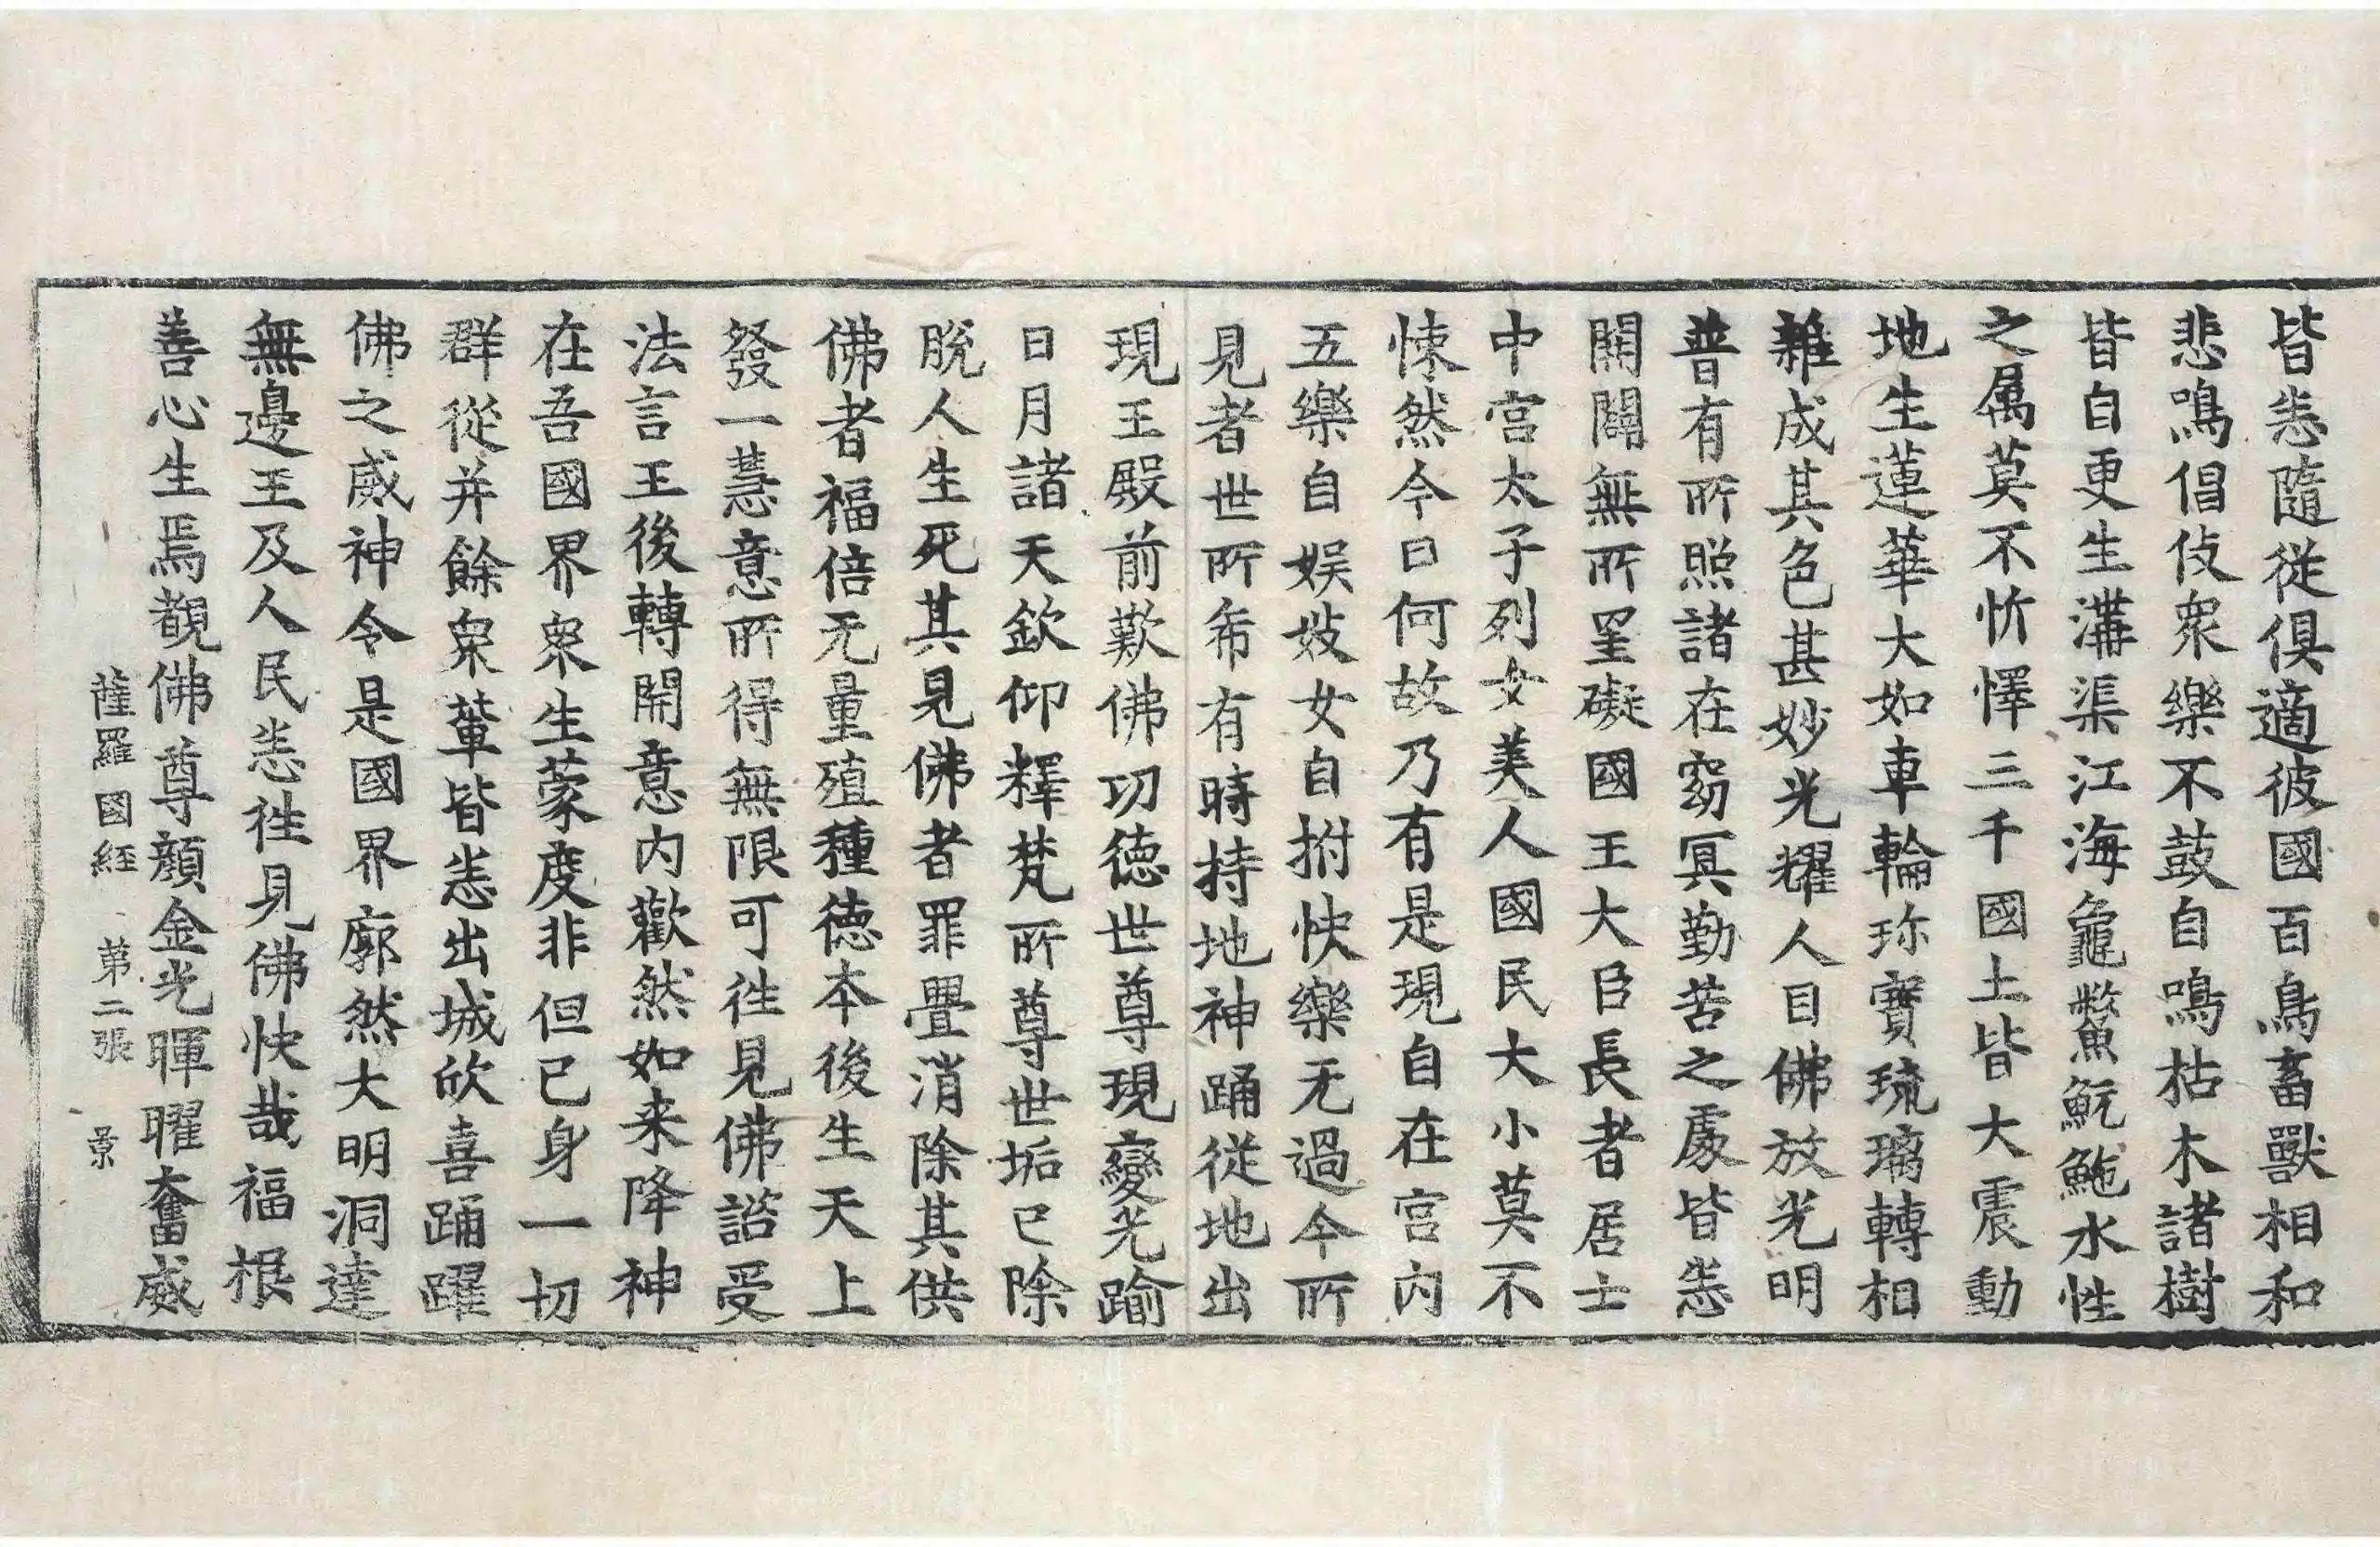 皆恙隨從俱適彼國百鳥畜獸相和
悲鳴倡伎衆樂不鼓自鳴枯木諸樹
皆自更生溝渠江海龜鱉魭鮑水性
之属莫不忻懌三千國土皆大震動
地生蓮華大如車輪珎寶琉璃轉相
雜成其色甚妙光耀人目佛放光明
普有所照諸在窈冥勤苦之處皆恙
開闢無所罣礙國王大臣長者居士
中宫太子列女美人國民大小莫不
悚然今日何故乃有是現自在宫内
五樂自娱妓女自拊快樂无過今所
見者世所希有時持地神踊從地出
現王殿前歎佛功德世尊現變光踰
日月諸天欽仰釋梵所尊世垢已除
脫人生死其見佛者罪疊消除其供
佛者福倍无量殖種德本後生天上
發一慧意所得無限可徃見佛諮受
法言王後轉開意内歡然如来降神
在吾國界衆生蒙度非但已身一切
群從并餘衆輩皆恙出城欣喜踊躍
佛之威神令是國界廓然大明洞達
無邊王及人民恙徃見佛快哉福根
善心生焉覩佛尊顔金光暉曜奮威
薩羅國經 第二張 景